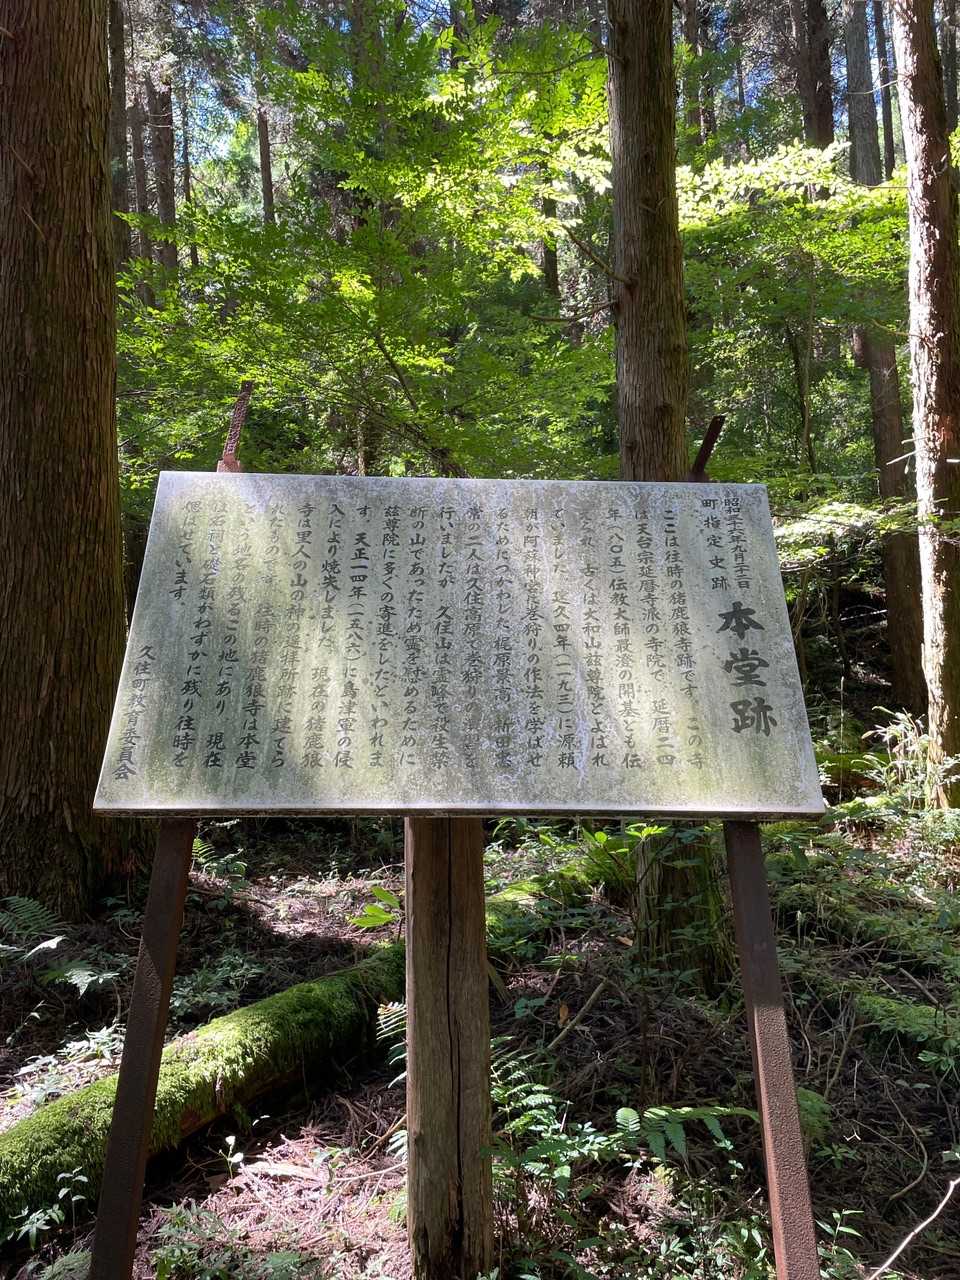 昭和三十六年九月二十二日
町指定史跡
本堂跡
ここは往時の猪鹿狼寺跡です。この寺
は天台宗延暦寺派の寺院で、延暦二四
年(八〇五)伝教大師最澄の開基とも伝
えられ、古くは大和山慈尊院とよばれ
ていました。建久四年(一一九三)に源頼
朝が阿蘇神宮に巻狩りの作法を学ばせ
るためにつかわした梶原景高、新田忠
常の二人は久住高原で巻狩りの
行いましたが、久住山は霊峰で殺生禁
断の山であったため霊を慰めるために
慈尊院に多くの寄進をしたといわれま
す。天正一四年(一五八六)に島津軍の侵
入により焼失しました。現在の猪鹿狼
寺は里人の山の神の遥拝所跡に建てら
れたものです。往時の猪鹿狼寺は本堂
という地名の残るこの地にあり、現在
は石祠と礎石類がわずかに残り往時を
偲ばせています。
久住町教育委員会